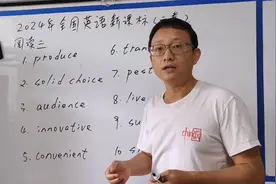 2024年全国英语新课标(二卷)
阅读三
1. produce
2. solid choice
3. audience
4. innovative
5. convenient
6. tran
7. pest
8. live
9. su
10. s